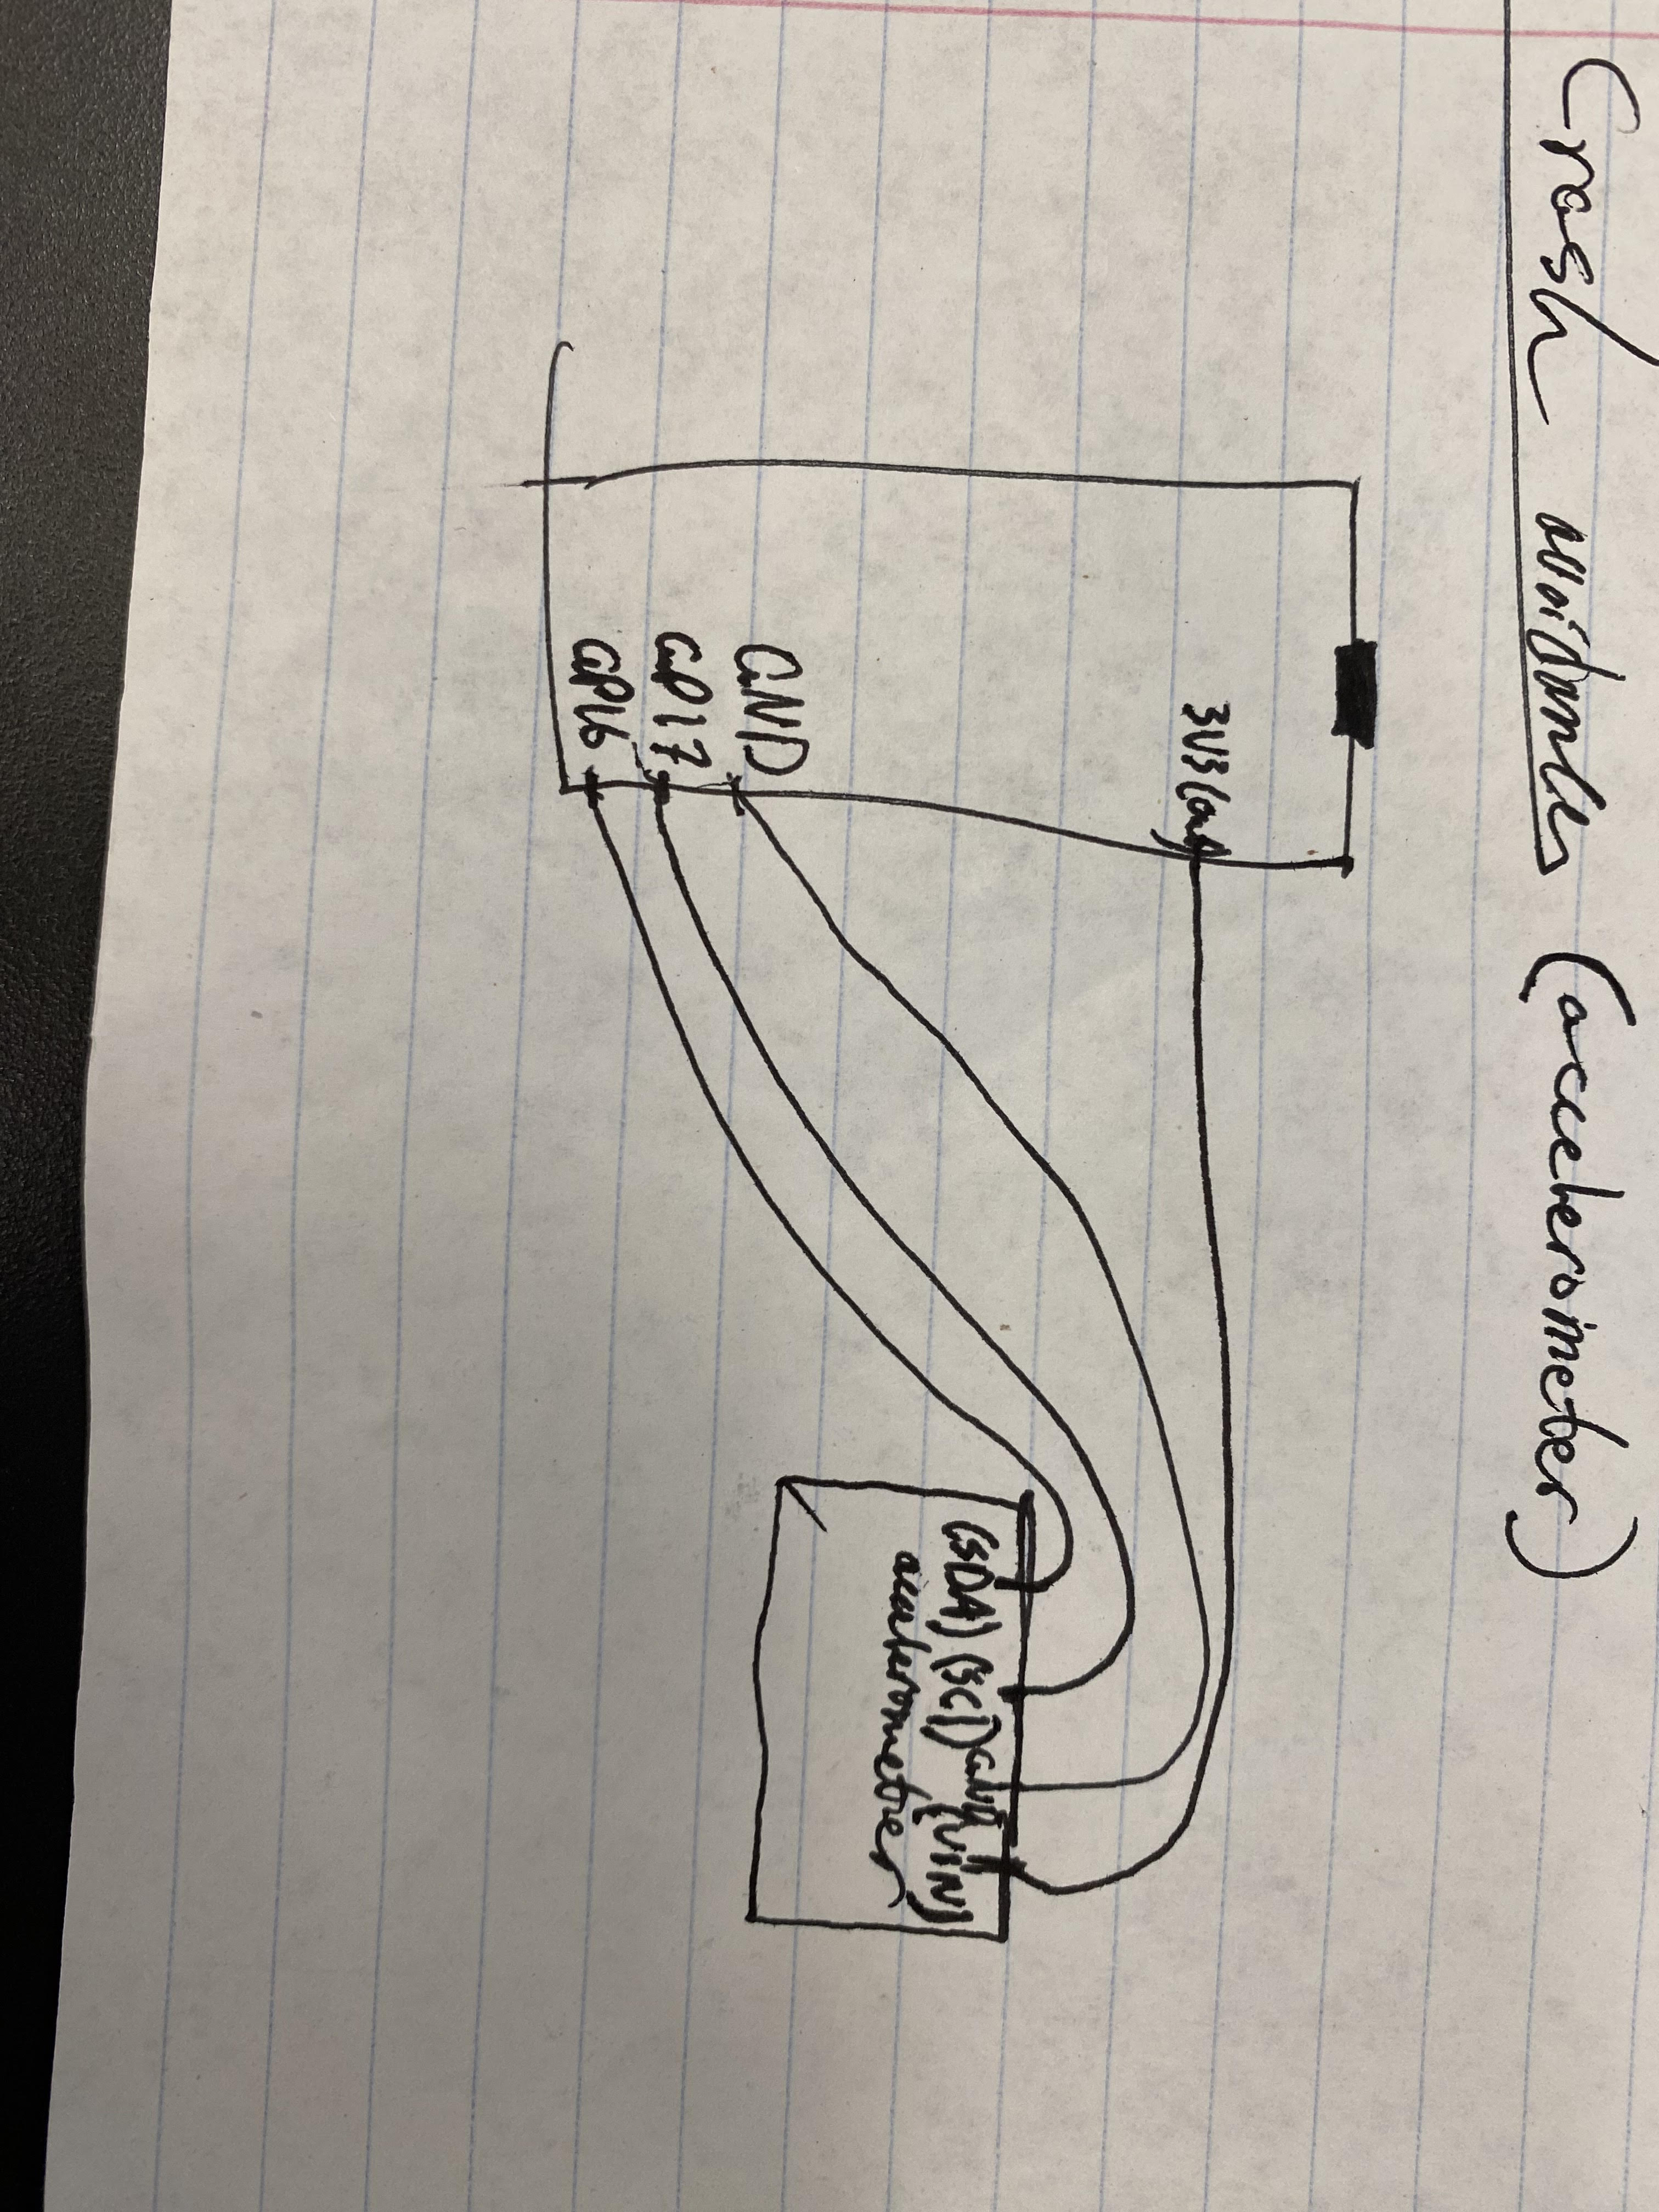 Crash avoidance (accelerometer)
3V3(out)
GND
GP17
GP16
(SDA) (SCl) GND (VIN)
accelerometer